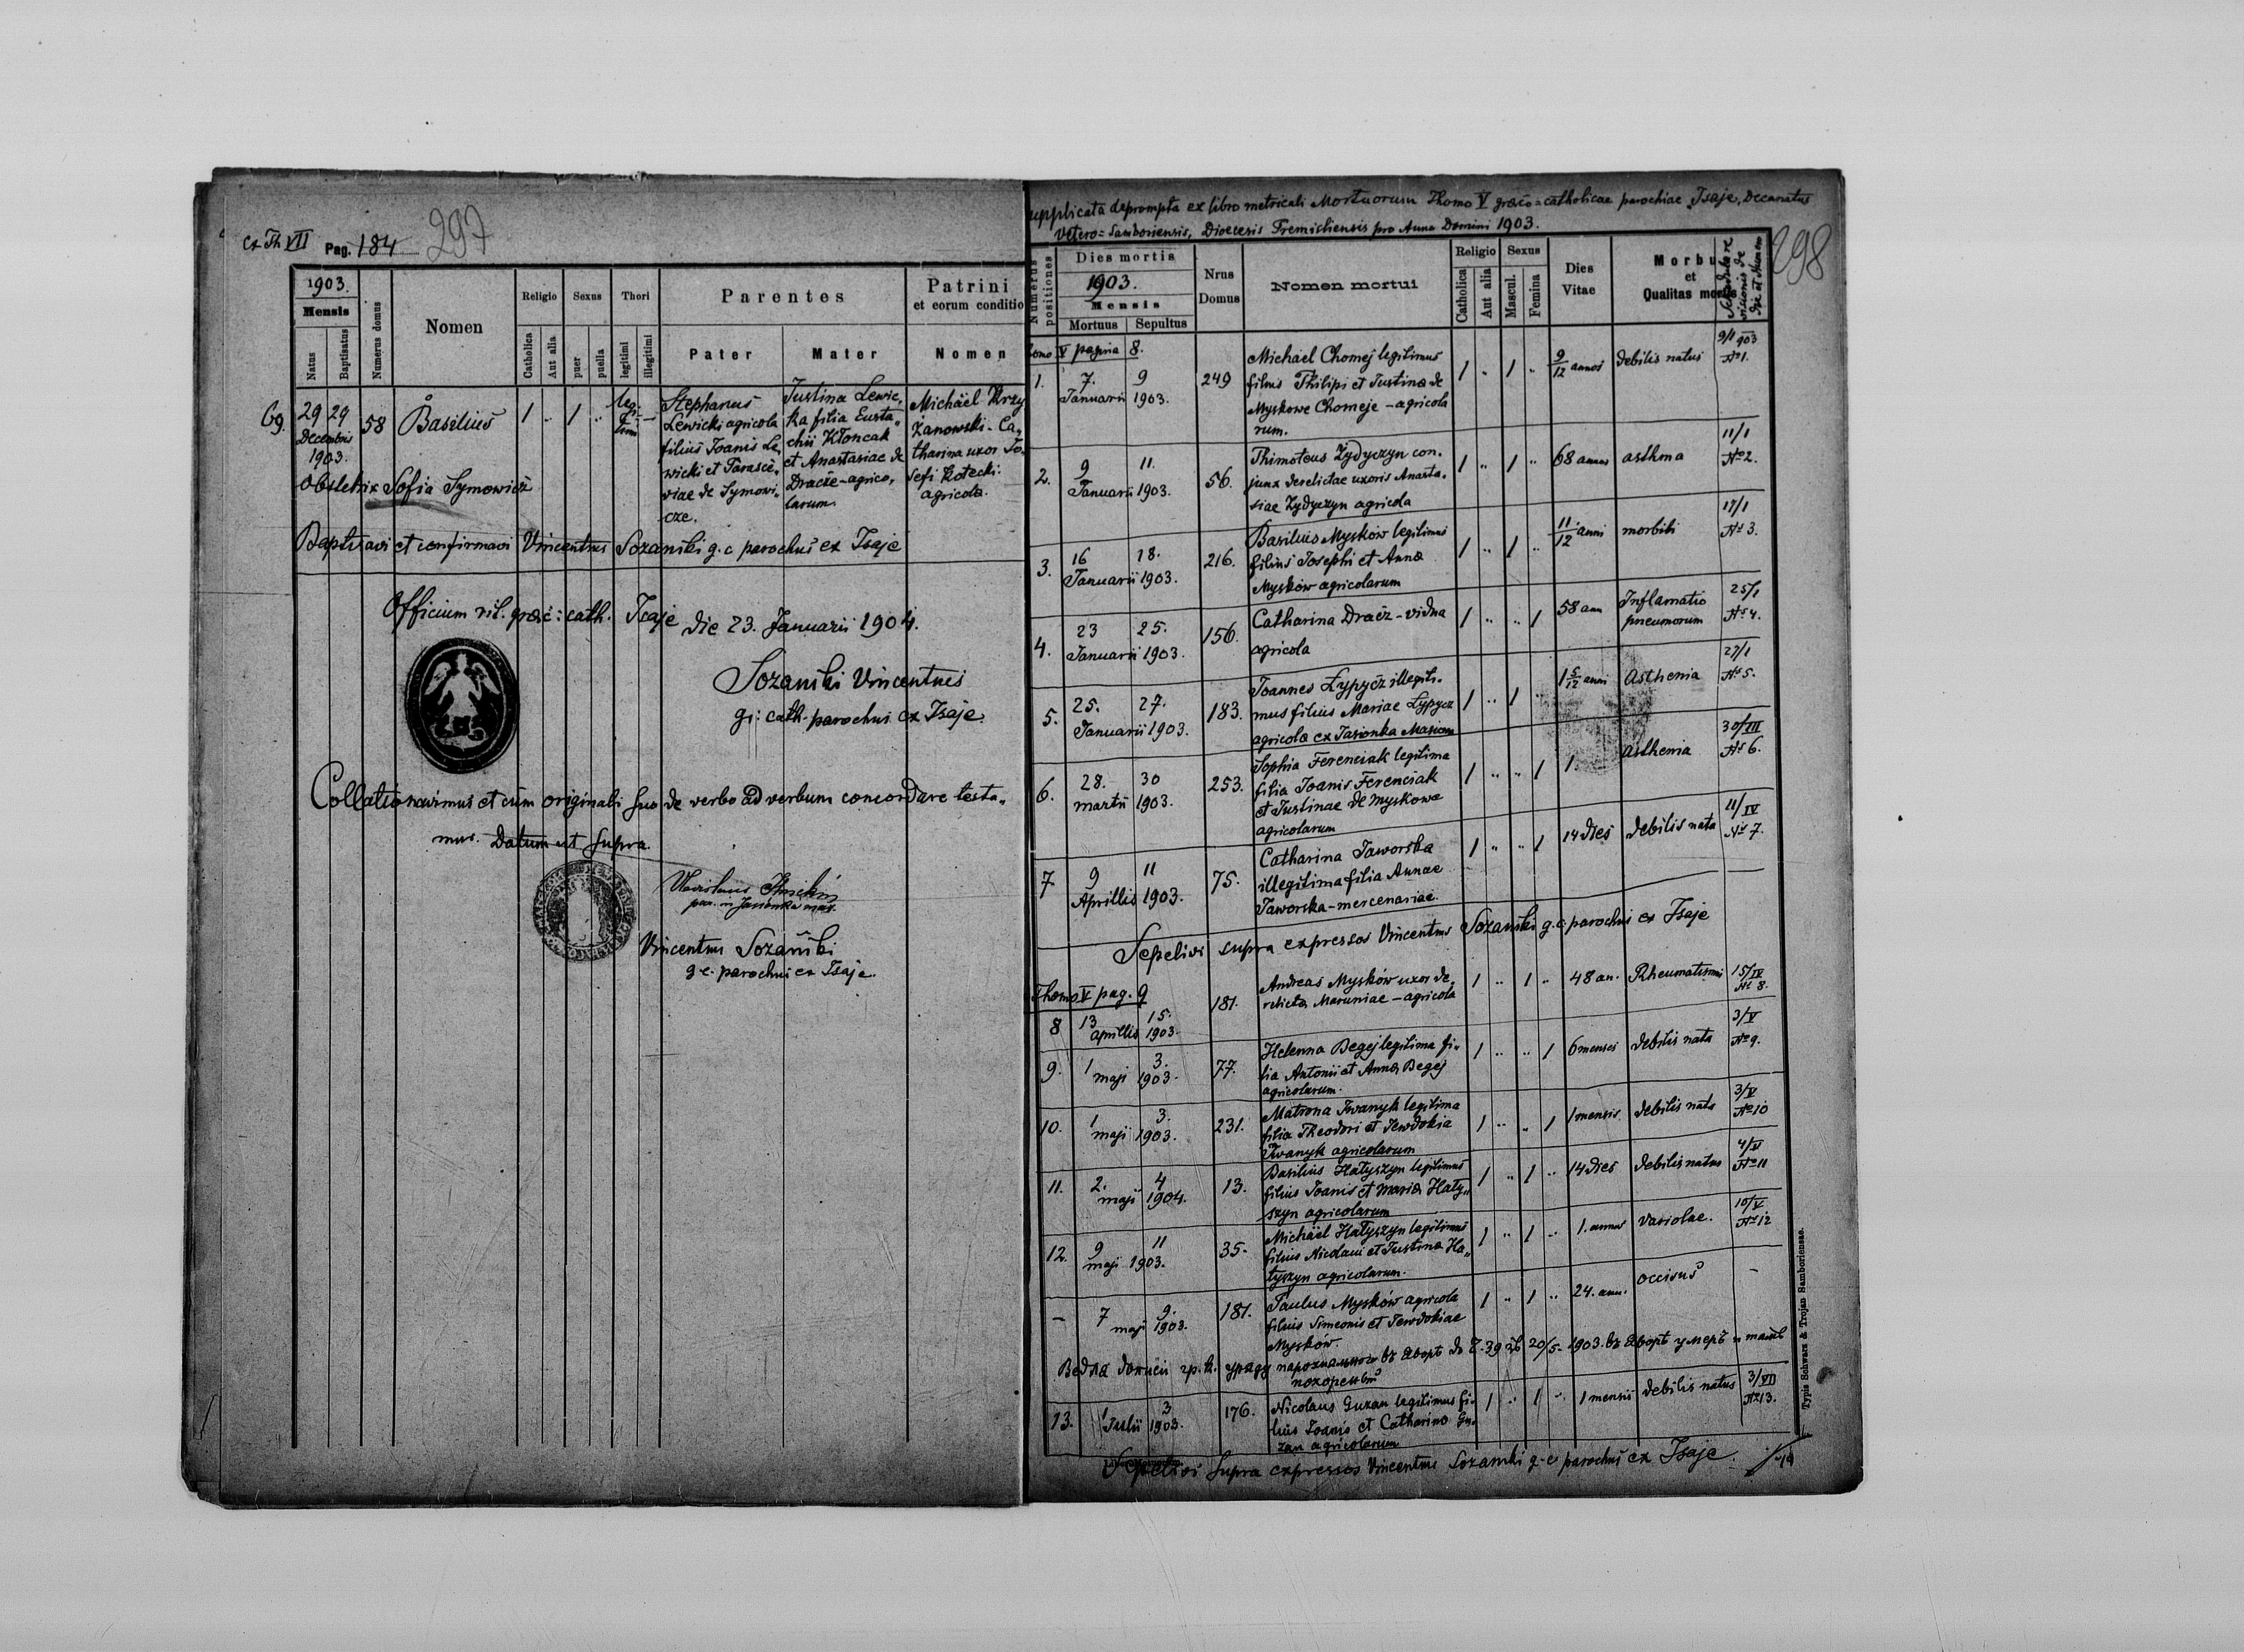 Ex Th VII Pag. 184 297
1903.
Mensis
Natus
Baptisatus
Numerus domus
Nomen
Religio
Catholica
Aut alia
Sexus
puer
puella
Thori
legitimi
illegitimi
Parentes
Pater
Mater
Patrini
et eorum conditio
Nomen
69.
29 29
Decembris
1903.
58
Basilius
1 " 1 "
legi
timi
–
Stephanus
Lewicki agricola
filius Joanis Le,,
wicki et Parasce,,
viae de Symowi,,
cze.
Justina Lewic,
ka filia Eusta,,
chii Kłoncak
et Anastasiae de
Dracze - agrico,
larum.
Michäel Krzy
żanowski - Ca,,
tharina uxor Jo,,
sefi Kotecki.
agricola.
Obstetrix Sofia Symowicz
Baptisavi et confirmavi Vincentius Sozański g. c parochus ex Isaje
Officium rit. graec: cath. Isaje die 23. Januarii 1904.
Sozański Vincentius
gr: cath. parochus ex Isaje.
Collationavimus et cum originali suo de verbo ad verbum concordare testa,,
mur. Datum ut supra.
par. in Jasionka mas.
Vincentius Sozański
g. c. parochus ex Isaje.
upplicata deprompta ex libro metricali Mortuorum Thomo V graeco=catholicae parochiae Isaje, Decanatus
Vetero=Samboriensis, Dioecesis Premisliensis pro Anno Domini 1903.
298
Numerus
positiones
Dies mortis
1903.
Mensis
Mortuus
Sepultus
Nrus
Domus
Nomen mortui
Religio
Catholica
Aut alia
Sexus
Mascul.
Femina
Dies
Vitae
Morbus
et
Qualitas mortis
Schedula re
visionis de
die et Numero
Tomo V pagina 8.
1.
7. 9
Januarii 1903.
249
Michael Chomej legitimus
filius Philipi et Justina de
Myskowe Chomeje - agricola
rum.
1 " 1 "
9/12 annos
debilis natus
9/1 903
№ 1.
2.
9 11.
Januarii 1903.
56.
Thimoteus Żydyczyn con.
junx derelictae uxoris Anasta.
siae Żydyczyn agricola
1 " 1 "
68 annos
asthma
11/1
№ 2.
3.
16 18.
Januarii 1903.
216.
Basilius Myskow legitimus
filius Josephi et Anna
Myskow agricolarum
1 " 1 "
11/12 anni
morbili
17/1
№ 3.
4.
23 25.
Januarii 1903.
156.
Catharina Dracz - vidua
agricola
1 " " 1
58 ann
Inflamatio
pneumorum
25/1
№ 4.
5.
25. 27.
Januarii 1903.
183.
Joannes Łypycz illegiti.
mus filius Mariae Łypycz
agricola ex Jasionka Masiowa
1 " 1 "
1 5/12 anni
Asthenia
27/1
№ 5.
6.
28. 30
martii 1903.
253.
Sophia Ferenciak legitima
filia Joanis Ferenciak
et Justinae de Myskowe
agricolarum
1 " " 1
1.
asthenia
30/III
№ 6.
7
9 11
Aprillis 1903.
75.
Catharina Jaworska
illegitima filia Annae
Jaworska - mercenariae.
1 " " 1
14 dies
debilis nata
11/IV
№ 7.
Sepelivi supra expressos Vincentius Sozański g. c. parochus ex Isaje
Thomo V pag. 9
8
13 15.
aprillis 1903.
181.
Andreas Myskow uxor de,
relicta Maruniae - agricola
1 " 1 "
48 an.
Rheumatismi
15/IV
№ 8.
9.
1 3.
maji 1903.
77.
Helenna Begej legitima fi-
lia Antonii et Anna Begej
agricolarum.
1 " " 1
6 menses
debilis nata
3/V
№ 9.
10.
1 3.
maji 1903.
231.
Matrona Iwanyk legitima
filia Theodori et Jewdokia
Iwanyk agricolarum
1 " " 1
1 mensis
debilis nata
3/V
№ 10
11.
2. 4
maji 1904.
13.
Basilius Hałyszyn legitimus
filius Joanis et Maria Hały,,
szyn agricolarum
1 " 1 "
14 dies
debilis natus
4/V
№ 11
12.
9 11
maji 1903.
35.
Michäel Hałyszyn legitimus
filius Nicolaui et Justina Ha,,
łyszyn agricolarum.
1 " 1 "
1. annus
variolae.
10/V
№ 12
–
7 9.
maji 1903.
181.
Paulus Myskow agricola
filius Simeonis et Jewdokiae
Myskow.
1 " 1 "
24. ann.
occisus
–
гр. к. уряду въ 39 20/5. 1903. умеръ и
похоренъ
13.
1 3
Julii 1903.
176.
Nicolaus Guzan legitimus fi.
lius Joanis et Catharina Gu.
zan agricolarum
1 " 1 "
1 mensis
debilis natus
3/VII
№ 13.
Sepelivi supra expressos Vincentius Sozański g. c. parochus ex Isaje.
Typis Schwarz & Trojan Samboriensae.